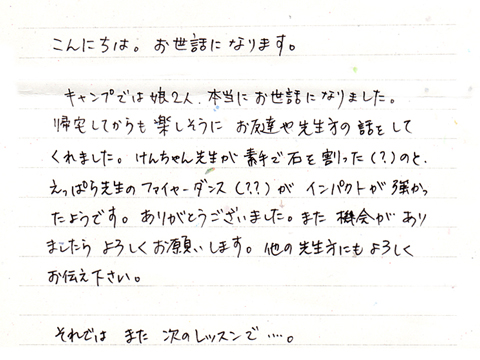 こんにちは。お世話になります。
キャンプでは娘2人、本当にお世話になりました。
帰宅してからも楽しそうに お友達や先生方の話をして
くれました。けんちゃん先生が素手で石を割った(?)のと、
えっぱら先生のファイヤーダンス(??)が インパクトが強かっ
たようです。ありがとうございました。また 機会があり
ましたら よろしくお願いします。他の先生方にもよろしく
お伝え下さい。
それでは また 次のレッスンで‥‥。